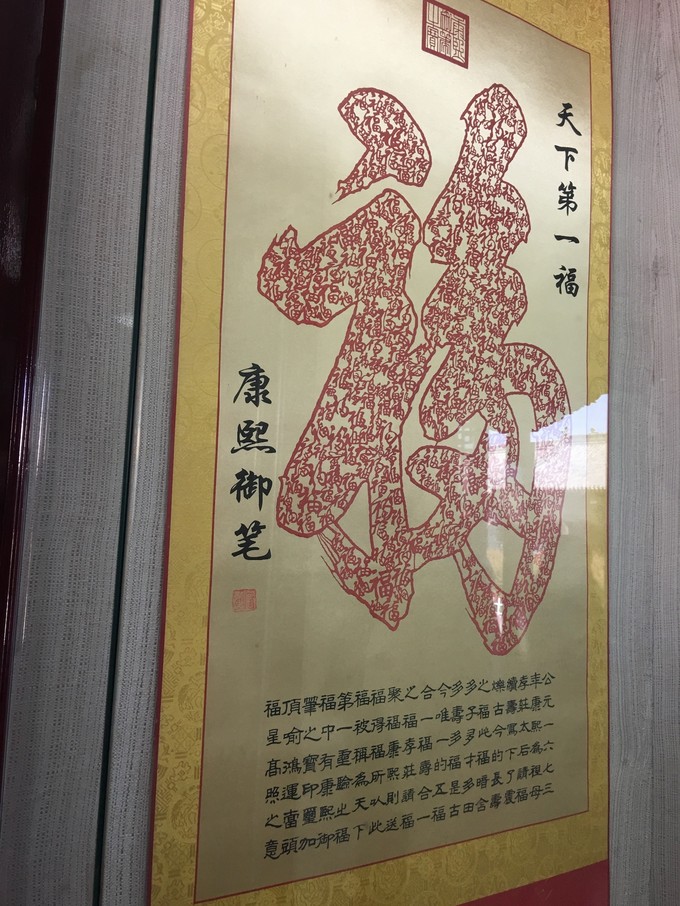 福
天下第一福
康熙御笔
公元一六七三
年康熙為祖母
孝莊太后請福
續壽寫下了震
爍古今的長壽
之福此福暗含
多子多才多田
多壽多福是古
今唯一的五福
合一福壽合一
之福孝莊請福
聚福康熙則送
福得福所以此
福被稱為天下
第一福
福中有康熙御
筆之寶印璽加
頂喻鴻運當頭
福星高照之意